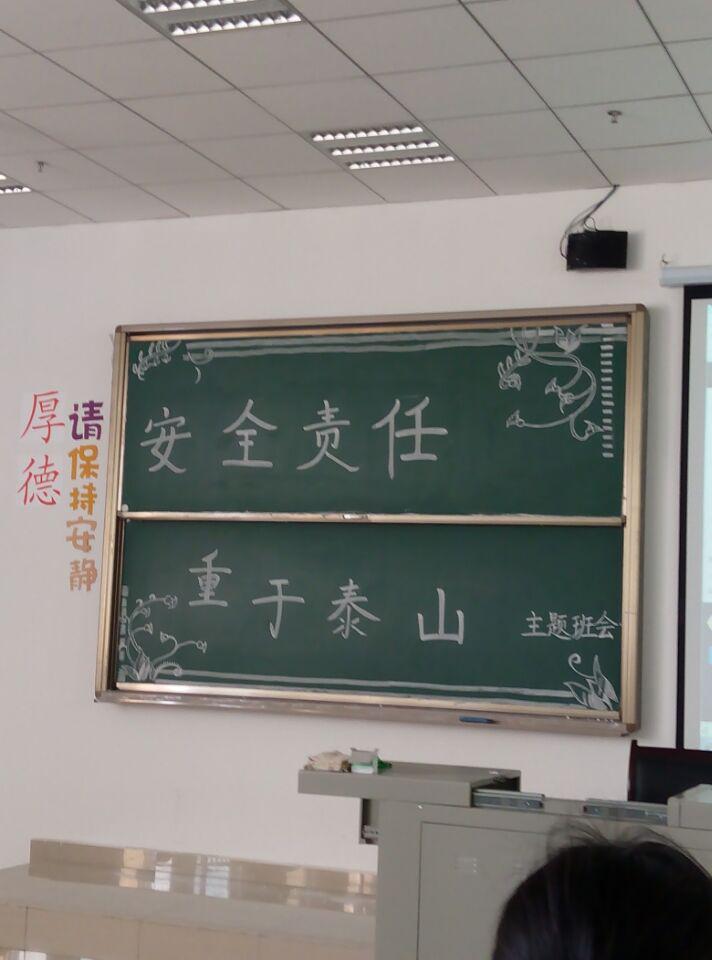 厚德
请保持安静
安全责任
重于泰山
主题班会